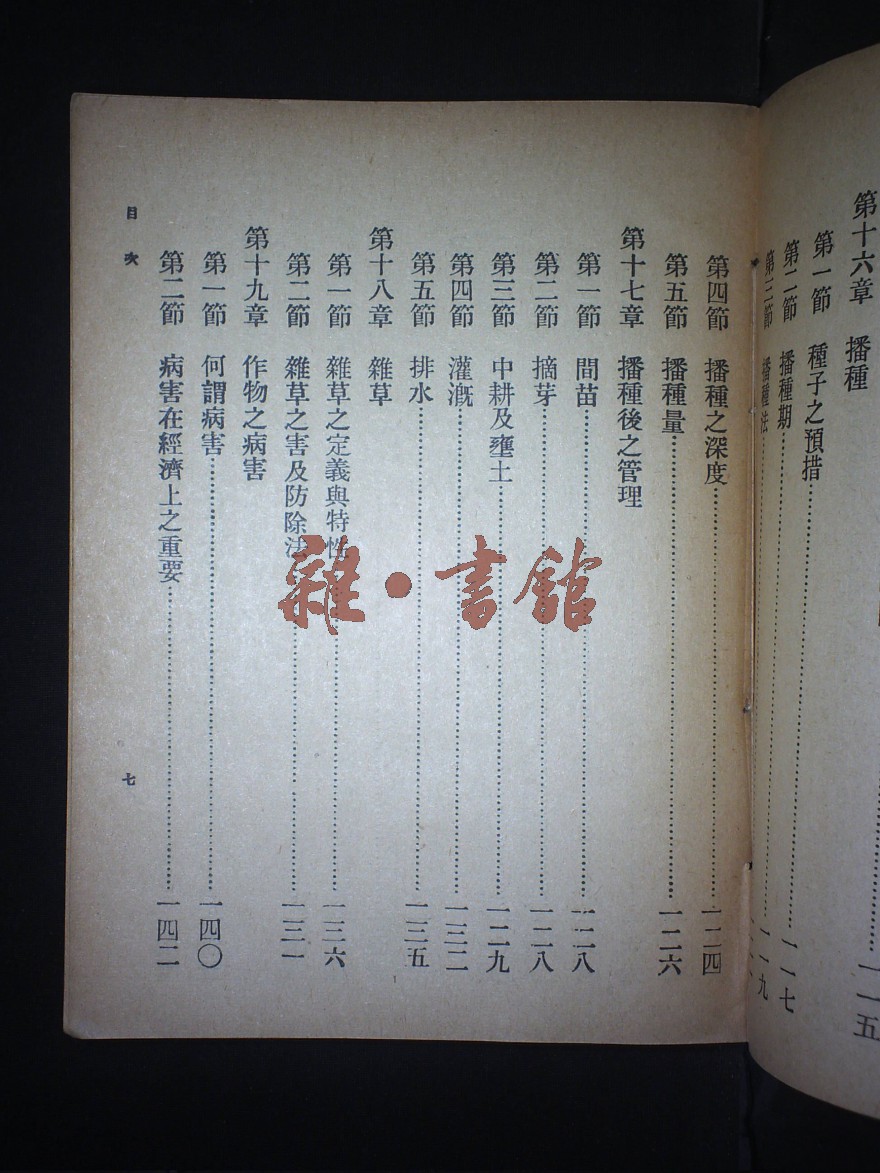 第十六章 播種
第一節 種子之預措……一一五
第二節 播種期……一一七
第三節 播種法……一一九
第四節 播種之深度……一二四
第五節 播種量……一二六
第十七章 播種後之管理
第一節 間苗……一二八
第二節 摘芽……一二八
第三節 中耕及壅土……一二九
第四節 灌漑……一三二
第五節 排水……一三五
第十八章 雜草
第一節 雜草之定義與特性……一三六
第二節 雜草之害及防除法……一三一
第十九章 作物之病害
第一節 何謂病害……一四〇
第二節 病害在經濟上之重要……一四二
目次
七
雜·書館